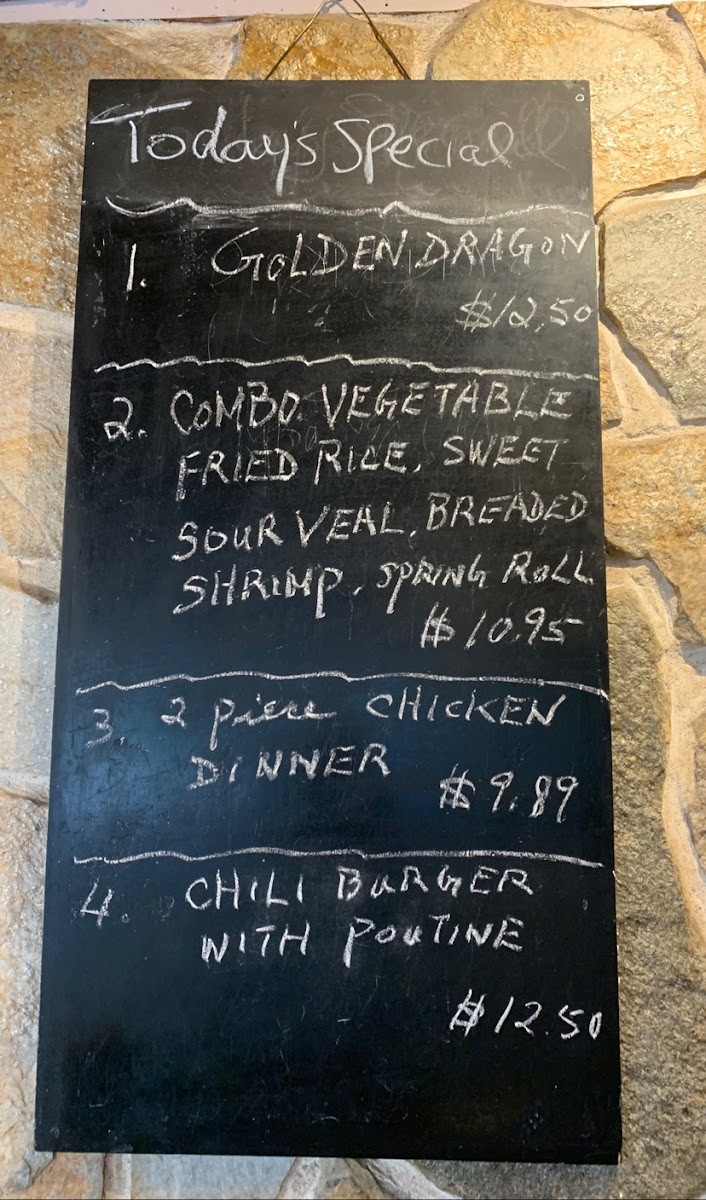 Today's Special
1. GOLDEN DRAGON
$12.50
2. COMBO. VEGETABLE
FRIED RICE, SWEET
SOUR VEAL, BREADED
SHRIMP, SPRING ROLL
$10.95
3. 2 piece CHICKEN
DINNER
$9.89
4. CHILI BURGER
WITH POUTINE
$12.50